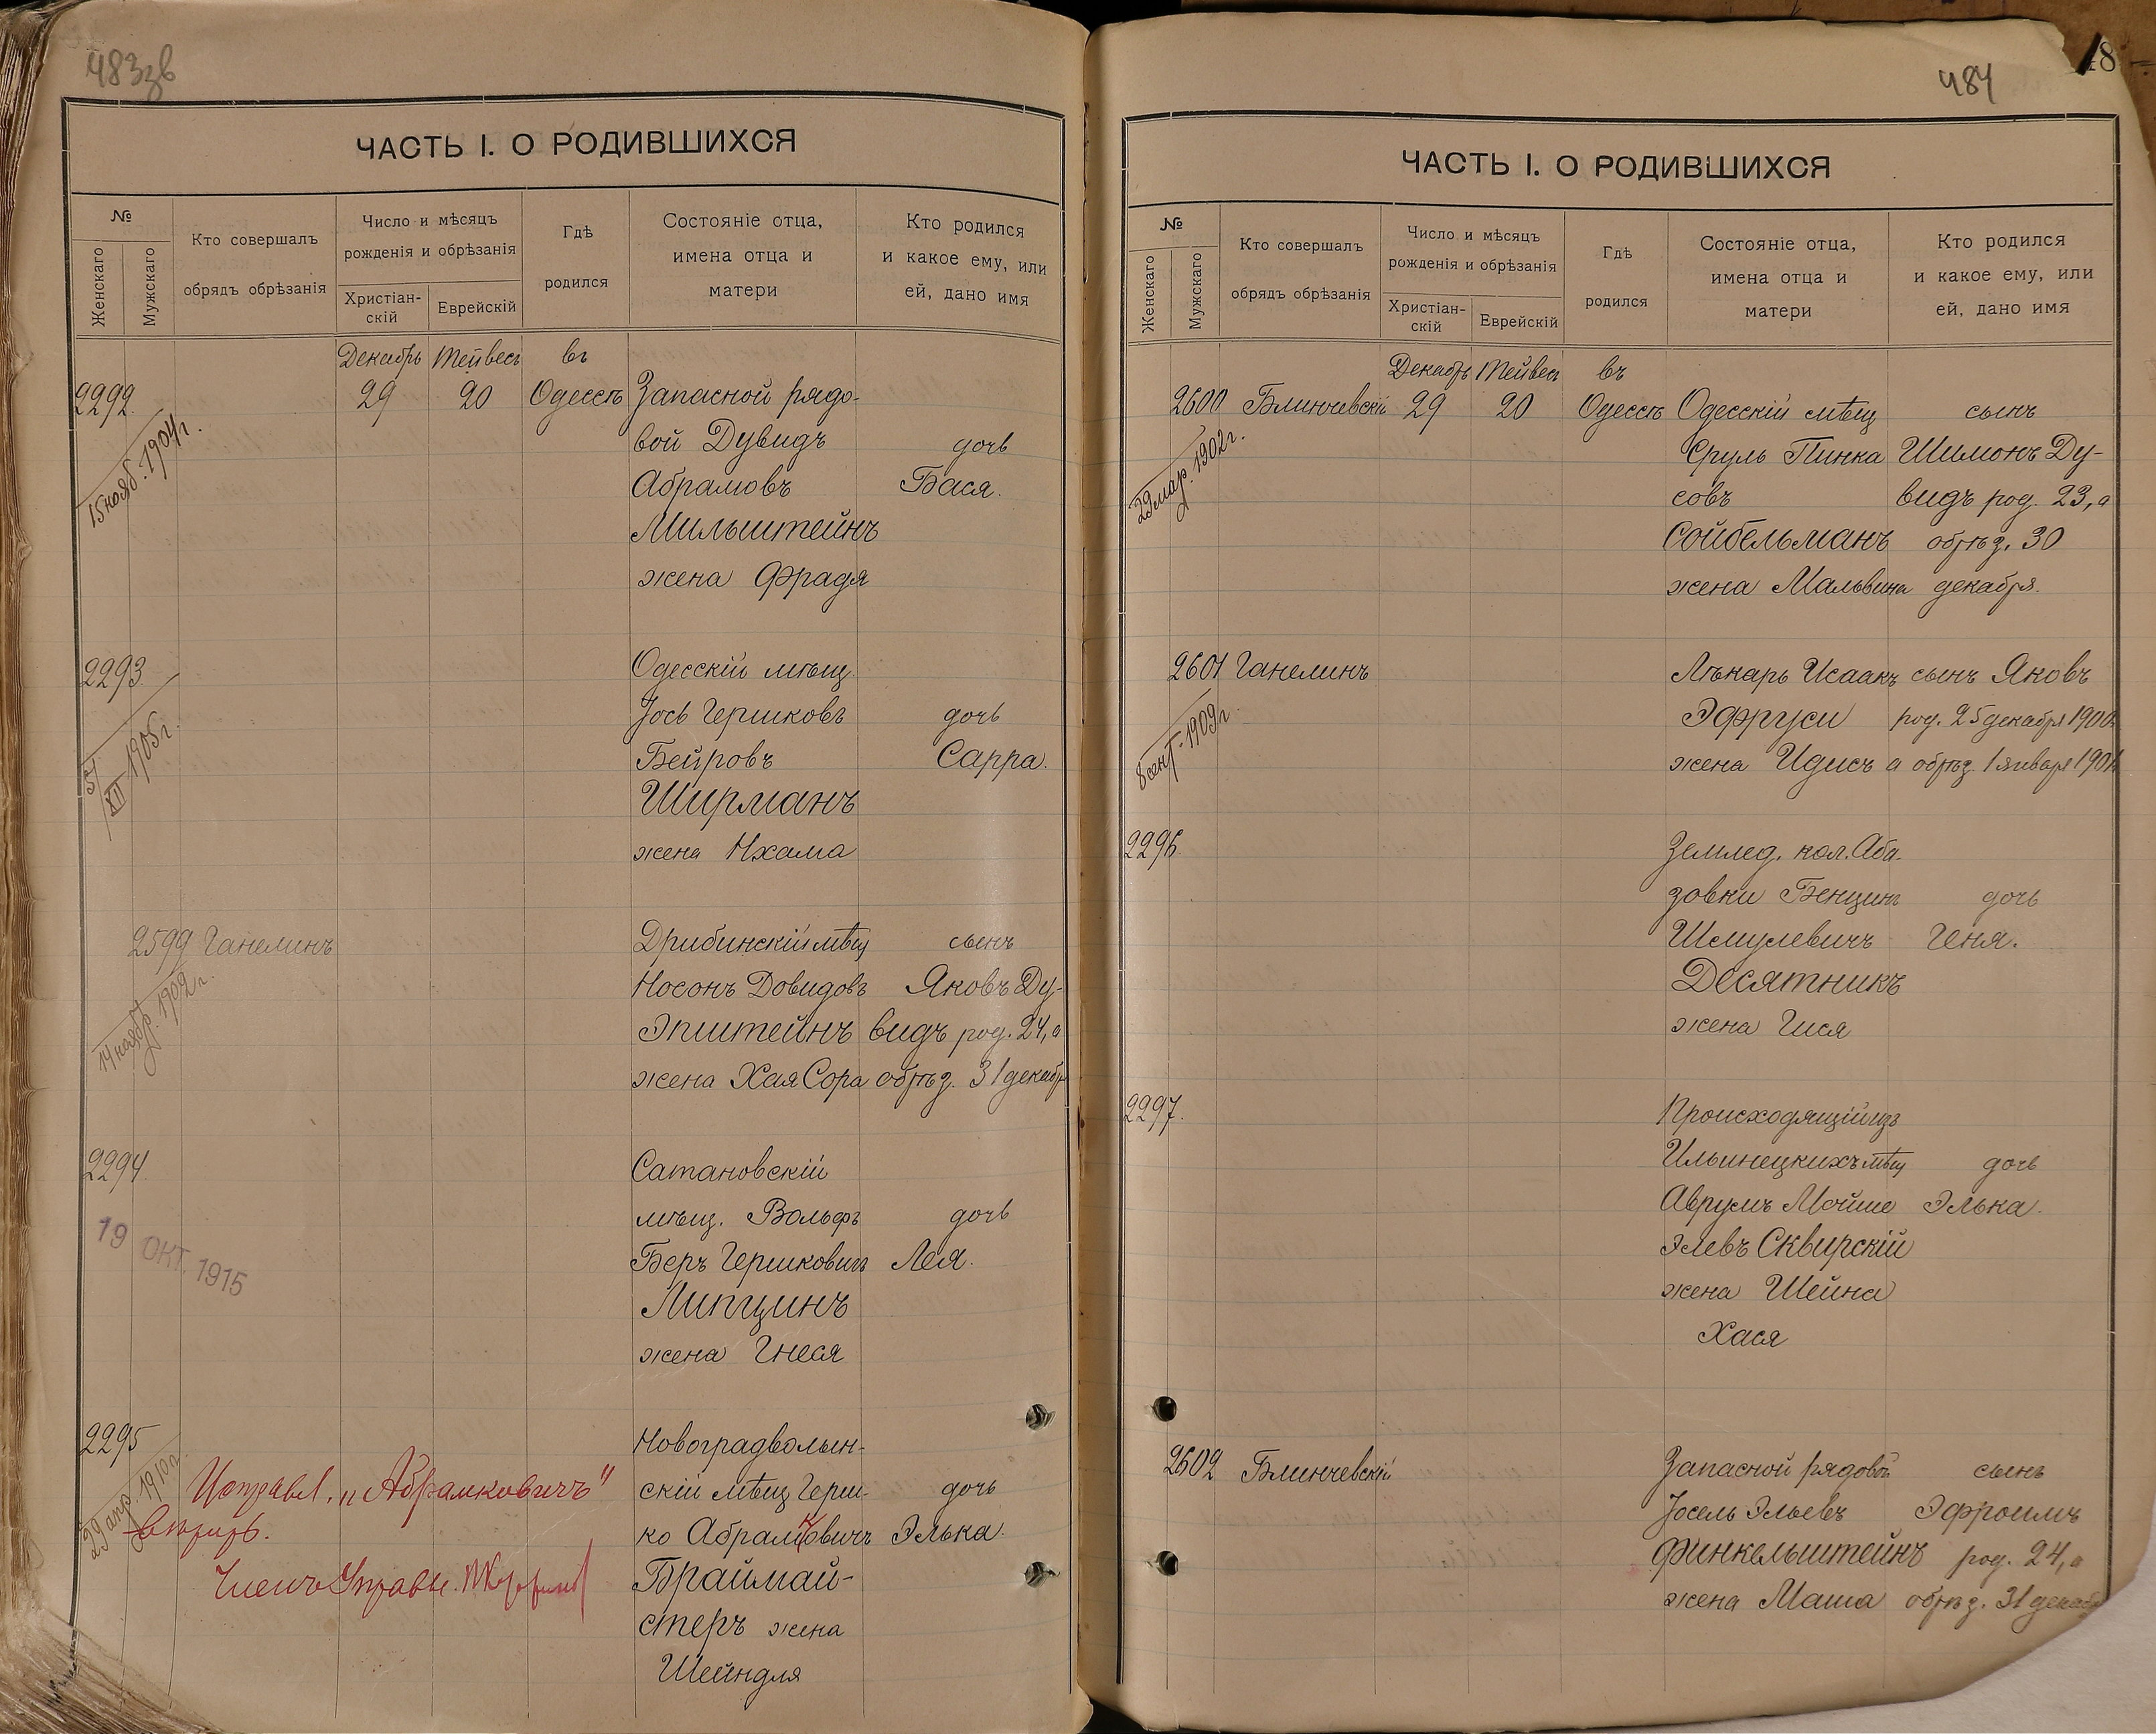 483зв
ЧАСТЬ I. О РОДИВШИХСЯ
№
Женскаго
Мужскаго
Кто совершалъ
обрядъ обрѣзанія
Число и мѣсяцъ
рожденія и обрѣзанія
Христіан-
скій
Еврейскій
Гдѣ
родился
Состояніе отца,
имена отца и
матери
Кто родился
и какое ему, или
ей, дано имя
Декабрь Тейвесъ въ
2292 29 20 Одессѣ Запасной рядо-
15 нояб. 1904 г.
вой Дувидъ дочь
Абрамовъ Бася.
Мильштейнъ
жена Фрадя
2293 Одесскій мѣщ.
5/XII 1905 г.
Іось Гершковъ дочь
Бейровъ Сарра.
Ширманъ
жена Нхама
2599 Ганелинъ Дрибинскій мѣщ сынъ
14 ноябр. 1902 г.
Носонъ Довидовъ Яковъ Ду-
Эпштейнъ видъ род. 24, а
жена Хая Сора обрѣз. 31 декабр
2294 Сатановскій
мѣщ. Вольфъ дочь
19 ОКТ. 1915
Беръ Гершковичъ Лея.
Липцинъ
жена Гнеся
2295 Новоградволын-
29 апр. 1910 г.
Исправл. „Абрамковичъ"
скій мѣщ Герш- дочь
ко Абрамковичъ Элька.
Членъ Управы.
Браймай-
стеръ жена
Шейндля
484
ЧАСТЬ I. О РОДИВШИХСЯ
№
Женскаго
Мужскаго
Кто совершалъ
обрядъ обрѣзанія
Число и мѣсяцъ
рожденія и обрѣзанія
Христіан-
скій
Еврейскій
Гдѣ
родился
Состояніе отца,
имена отца и
матери
Кто родился
и какое ему, или
ей, дано имя
Декабрь Тейвесъ въ
2600 Блинчевскій 29 20 Одессѣ Одесскій мѣщ сынъ
29 мар. 1902 г.
Сруль Пинка Шимонъ Ду-
совъ видъ род. 23, а
Сойбельманъ обрѣз. 30
жена Мальвина декабря.
2601 Ганелинъ Лѣкарь Исаакъ сынъ Яковъ
8 сент. 1909 г
Эфруси род. 25 декабря 1900
жена Идисъ а обрѣз. 1 января 1901
2296. Землед. кол. Аба-
зовки Бенціинъ дочь
Шмулевичъ Геня.
Десятникъ
жена Гися
2297. Происходящій изъ
Ильинецкихъ мѣщ дочь
Аврумъ Мойше Элька.
Элевъ Сквирскій
жена Шейна
Хася
2602 Блинчевскій Запасной рядовой сынъ
Іосель Эльевъ Эфроимъ
Финкельштейнъ род. 24, а
жена Маша обрѣз. 31 декабр